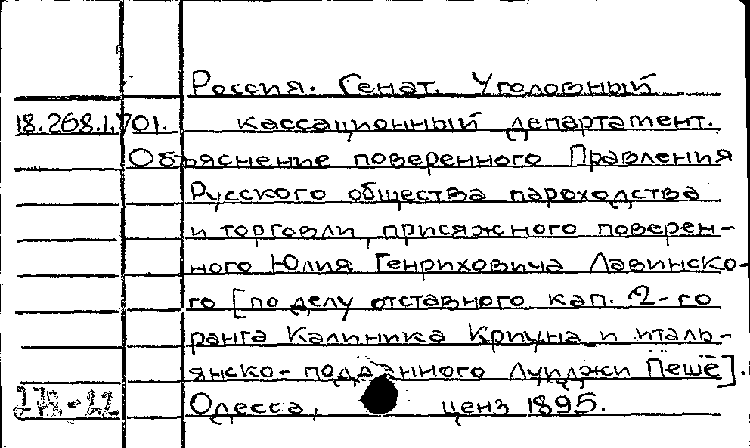 Россия. Сенат. Уголовный
18.268.1.701. кассационный департамент.
Объяснение поверенного Правления
Русского общества пароходства
и торговли, присяжного поверен-
ного Юлия Генриховича Лавинско-
го [по делу отставного кап. 2-го
ранга Калиника Криуна и италь-
янско-подданного Луиджи Пеше].
Одесса, ценз 1895.